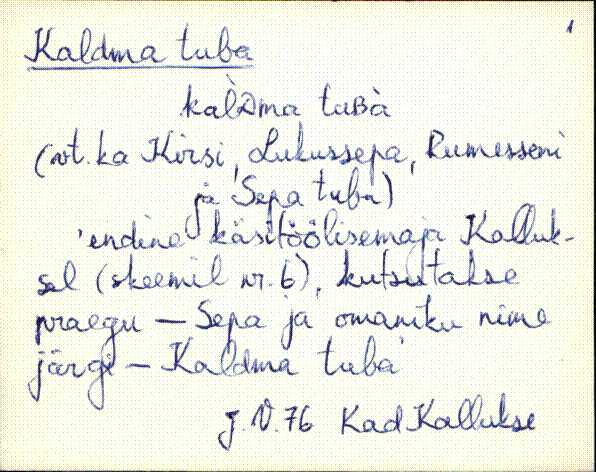 1
Kaldma tuba
kal̀Dma tuʙà
(vt. ka Kirsi, Lukussepa, Rumesseni
ja Sepa tuba)
'endine käsitöölisemaja Kalluk-
sel (skeemil nr. 6), kutsutakse
praegu — Sepa ja omaniku nime
järgi — Kaldma tuba'
J. V. 76 Kad Kallukse